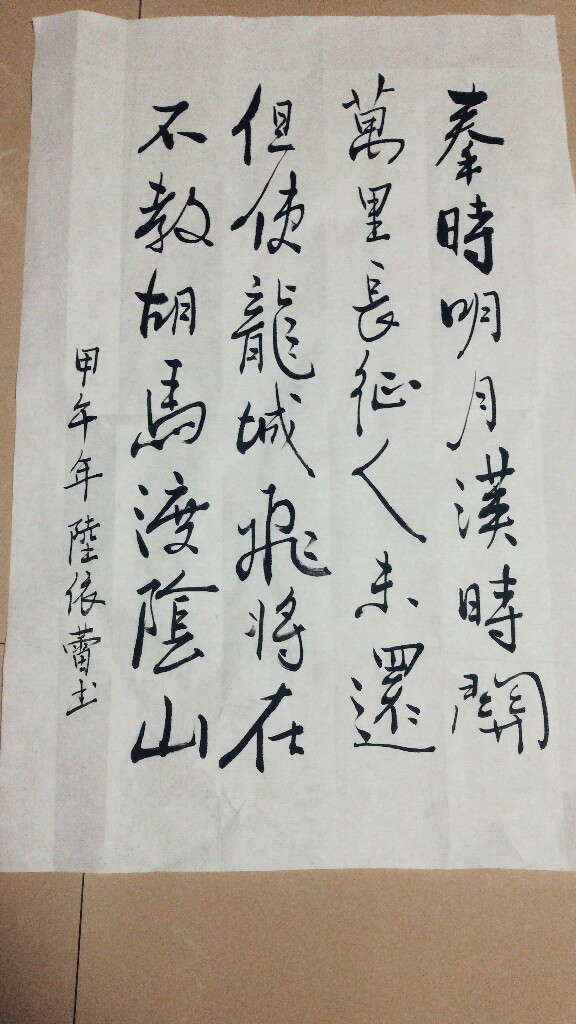 秦時明月漢時關
萬里長征人未還
但使龍城飛將在
不教胡馬渡陰山
甲午年陸依蕾书